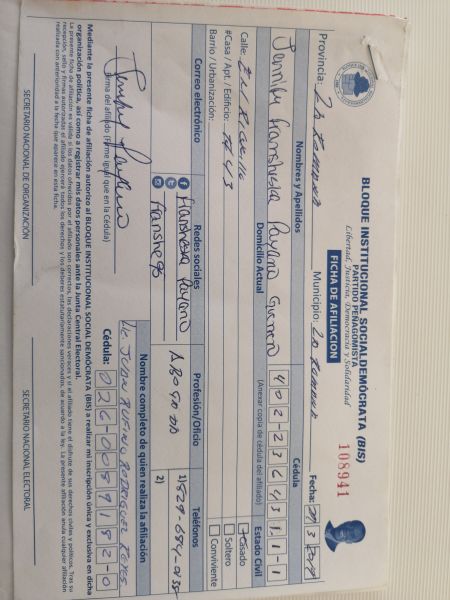 BLOQUE INSTITUCIONAL SOCIALDEMÓCRATA (BIS)
PARTIDO PEÑAGOMISTA
Libertad, Justicia, Democracia y Solidaridad
FICHA DE AFILIACION
108941
Provincia: La Romana Municipio: La Romana Fecha:
Nombres y Apellidos Cédula
Jennifer Fransheska Payano 402-2364311-1
Domicilio Actual (Anexar copia de cédula del afiliado) Estado Civil
Calle:
#Casa / Apt. / Edificio: # 43
Barrio / Urbanización:
Casado
Soltero
Conviviente
Correo electrónico Redes sociales Profesión/Oficio Teléfonos
Fransheska Payano
Franshe95
Abogada
1) 829-684-0135
2)
Nombre completo de quien realiza la afiliación
Lic. Juan Rufino Rodriguez Reyes
Firma del afiliado (Firme igual que en la Cédula)
Cédula: 026-0059182-0
Mediante la presente ficha de afiliación autorizo al BLOQUE INSTITUCIONAL SOCIAL DEMÓCRATA (BIS) a realizar mi inscripción única y exclusiva en dicha
organización política, así como a registrar mis datos personales ante la Junta Central Electoral.
SECRETARIO NACIONAL DE ORGANIZACIÓN SECRETARIO NACIONAL ELECTORAL